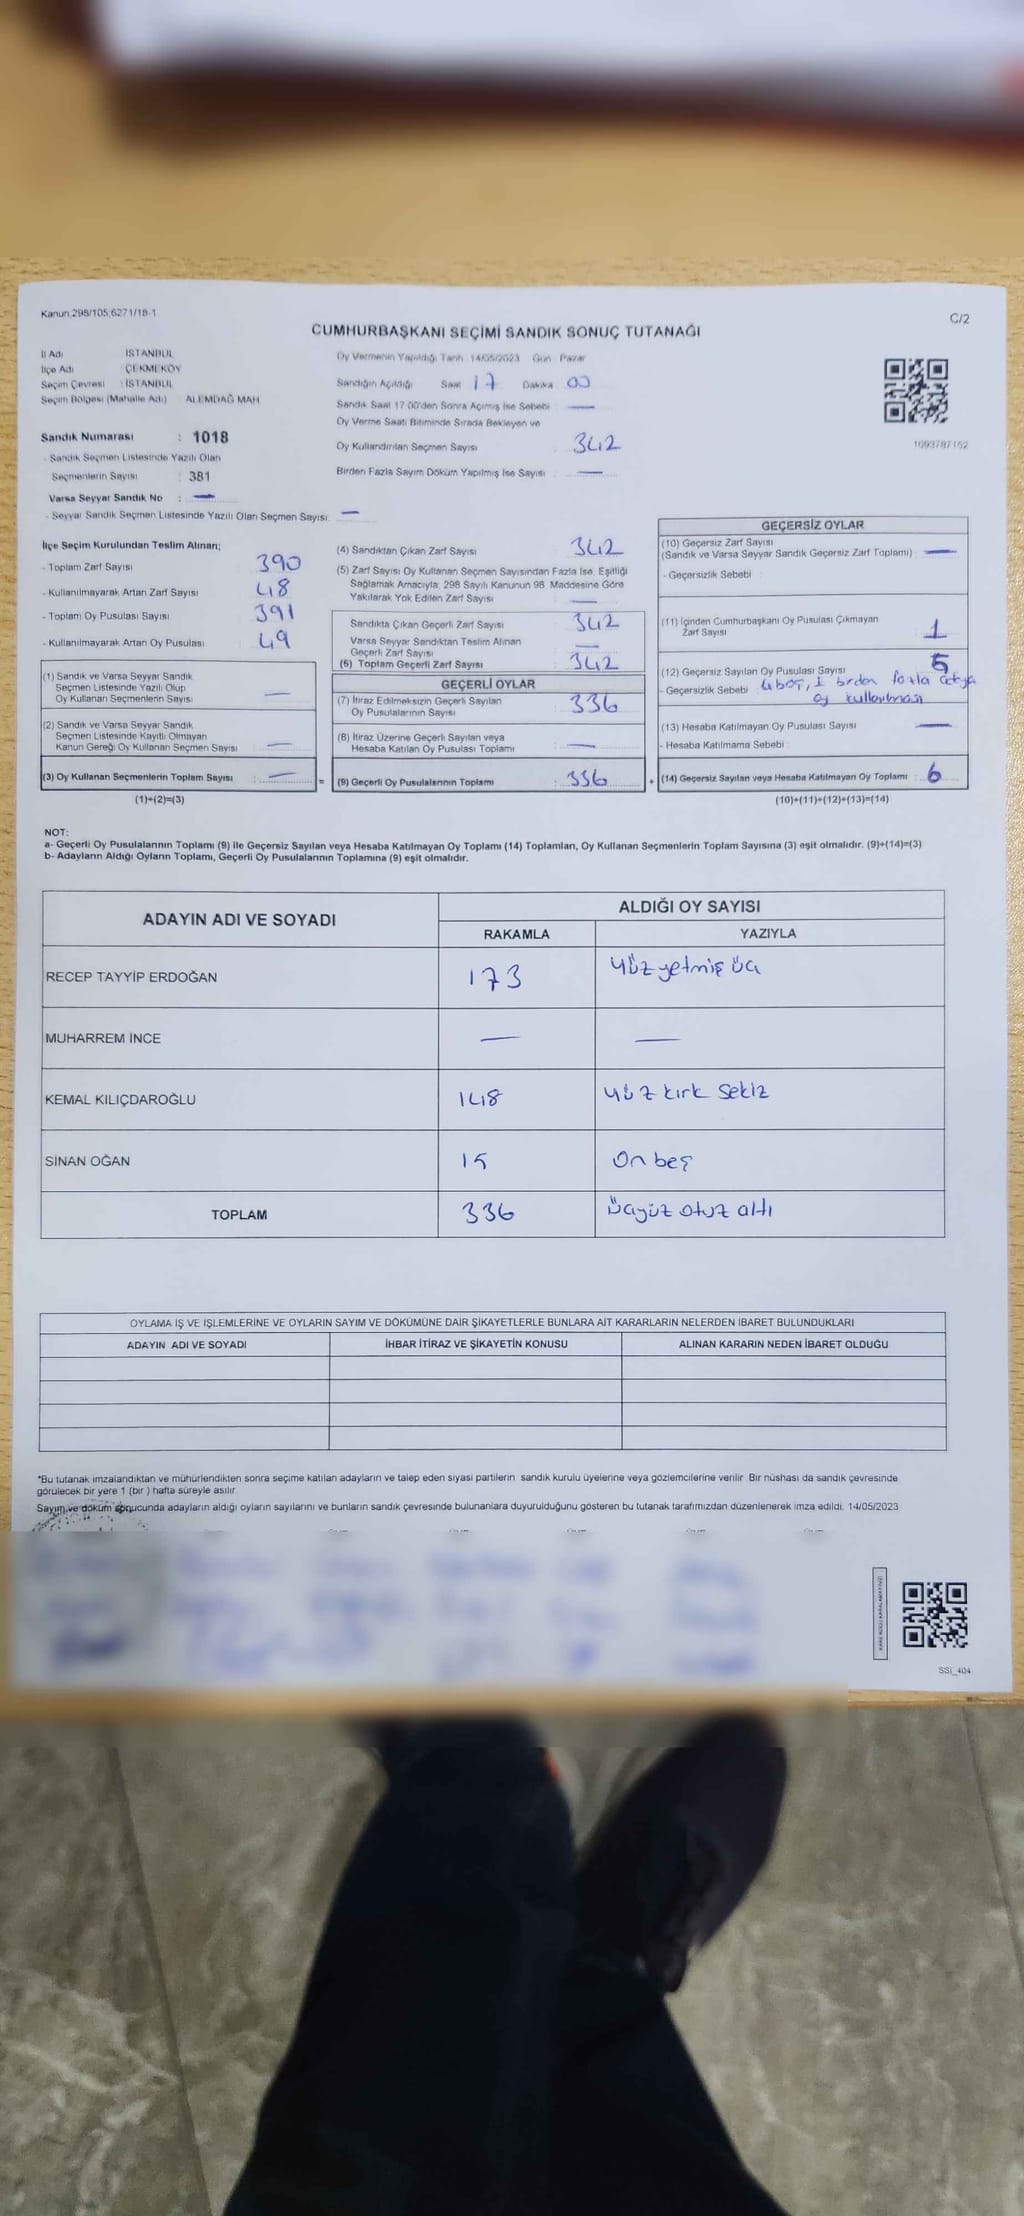 Kanun;298/105,6271/18-1
C/2
CUMHURBAŞKANI SEÇİMİ SANDIK SONUÇ TUTANAĞI
İl Adı : İSTANBUL
İlçe Adı : ÇEKMEKÖY
Seçim Çevresi : İSTANBUL
Seçim Bölgesi (Mahalle Adı) : ALEMDAĞ MAH
Sandık Numarası : 1018
- Sandık Seçmen Listesinde Yazılı Olan
Seçmenlerin Sayısı : 381
Varsa Seyyar Sandık No : —
- Seyyar Sandık Seçmen Listesinde Yazılı Olan Seçmen Sayısı: —
Oy Vermenin Yapıldığı Tarih : 14/05/2023 Gün : Pazar
Sandığın Açıldığı Saat 17 Dakika 00
Sandık Saat 17.00'den Sonra Açımış İse Sebebi : —
Oy Verme Saati Bitiminde Sırada Bekleyen ve
Oy Kullandırılan Seçmen Sayısı : 342
Birden Fazla Sayım Döküm Yapılmış İse Sayısı : —
1093787152
İlçe Seçim Kurulundan Teslim Alınan;
- Toplam Zarf Sayısı : 390
- Kullanılmayarak Artan Zarf Sayısı : 48
- Toplam Oy Pusulası Sayısı : 391
- Kullanılmayarak Artan Oy Pusulası : 49
(1) Sandık ve Varsa Seyyar Sandık
Seçmen Listesinde Yazılı Olup
Oy Kullanan Seçmenlerin Sayısı : —
(2) Sandık ve Varsa Seyyar Sandık
Seçmen Listesinde Kayıtlı Olmayan
Kanun Gereği Oy Kullanan Seçmen Sayısı : —
(3) Oy Kullanan Seçmenlerin Toplam Sayısı : —
(1)+(2)=(3)
=
(4) Sandıktan Çıkan Zarf Sayısı : 342
(5) Zarf Sayısı Oy Kullanan Seçmen Sayısından Fazla İse, Eşitliği
Sağlamak Amacıyla, 298 Sayılı Kanunun 98. Maddesine Göre
Yakılarak Yok Edilen Zarf Sayısı : —
Sandıkta Çıkan Geçerli Zarf Sayısı : 342
Varsa Seyyar Sandıktan Teslim Alınan
Geçerli Zarf Sayısı : —
(6) Toplam Geçerli Zarf Sayısı : 342
GEÇERLİ OYLAR
(7) İtiraz Edilmeksizin Geçerli Sayılan
Oy Pusulalarının Sayısı : 336
(8) İtiraz Üzerine Geçerli Sayılan veya
Hesaba Katılan Oy Pusulası Toplamı : —
(9) Geçerli Oy Pusulalarının Toplamı : 336
+
GEÇERSİZ OYLAR
(10) Geçersiz Zarf Sayısı
(Sandık ve Varsa Seyyar Sandık Geçersiz Zarf Toplamı) : —
- Geçersizlik Sebebi :
(11) İçinden Cumhurbaşkanı Oy Pusulası Çıkmayan
Zarf Sayısı : 1
(12) Geçersiz Sayılan Oy Pusulası Sayısı : 5
- Geçersizlik Sebebi : 4 boş, 1 birden fazla
oy kullanılması
(13) Hesaba Katılmayan Oy Pusulası Sayısı : —
- Hesaba Katılmama Sebebi :
(14) Geçersiz Sayılan veya Hesaba Katılmayan Oy Toplamı : 6
(10)+(11)+(12)+(13)=(14)
NOT:
a- Geçerli Oy Pusulalarının Toplamı (9) ile Geçersiz Sayılan veya Hesaba Katılmayan Oy Toplamı (14) Toplamları, Oy Kullanan Seçmenlerin Toplam Sayısına (3) eşit olmalıdır. (9)+(14)=(3)
b- Adayların Aldığı Oyların Toplamı, Geçerli Oy Pusulalarının Toplamına (9) eşit olmalıdır.
ADAYIN ADI VE SOYADI
ALDIĞI OY SAYISI
RAKAMLA YAZIYLA
RECEP TAYYİP ERDOĞAN 173 Yüz yetmiş üç
MUHARREM İNCE — —
KEMAL KILIÇDAROĞLU 148 Yüz kırk sekiz
SİNAN OĞAN 15 On beş
TOPLAM 336 Üçyüz otuz altı
OYLAMA İŞ VE İŞLEMLERİNE VE OYLARIN SAYIM VE DÖKÜMÜNE DAİR ŞİKAYETLERLE BUNLARA AİT KARARLARIN NELERDEN İBARET BULUNDUKLARI
ADAYIN ADI VE SOYADI İHBAR İTİRAZ VE ŞİKAYETİN KONUSU ALINAN KARARIN NEDEN İBARET OLDUĞU
*Bu tutanak imzalandıktan ve mühürlendikten sonra seçime katılan adayların ve talep eden siyasi partilerin sandık kurulu üyelerine veya gözlemcilerine verilir. Bir nüshası da sandık çevresinde
görülecek bir yere 1 (bir ) hafta süreyle asılır.
Sayım ve döküm sonucunda adayların aldığı oyların sayılarını ve bunların sandık çevresinde bulunanlara duyurulduğunu gösteren bu tutanak tarafımızdan düzenlenerek imza edildi. 14/05/2023
SSI_404